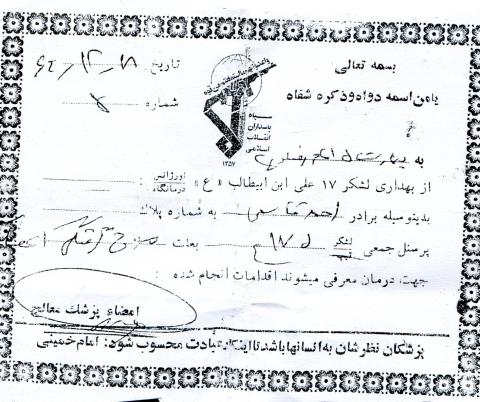 بسمه تعالی
تاریخ ۶۴٫۱۲٫۱۸
یا من اسمه دواء و ذکره شفاء
شماره
سپاه
پاسداران
انقلاب
اسلامی
۱۳۵۷
به بیمارستان امام رضا
از بهداری لشکر ۱۷ علی ابن ابیطالب «ع» اورژانس درمانگاه :
بدینوسیله برادر احمد به شماره پلاک
پرسنل جمعی لشکر تیپ ل ۱۷ بعلت
جهت درمان معرفی میشوند اقدامات انجام شده :
امضاء پزشک معالج
پزشکان نظرشان به انسانها باشد تا اینکار عبادت محسوب شود : امام خمینی